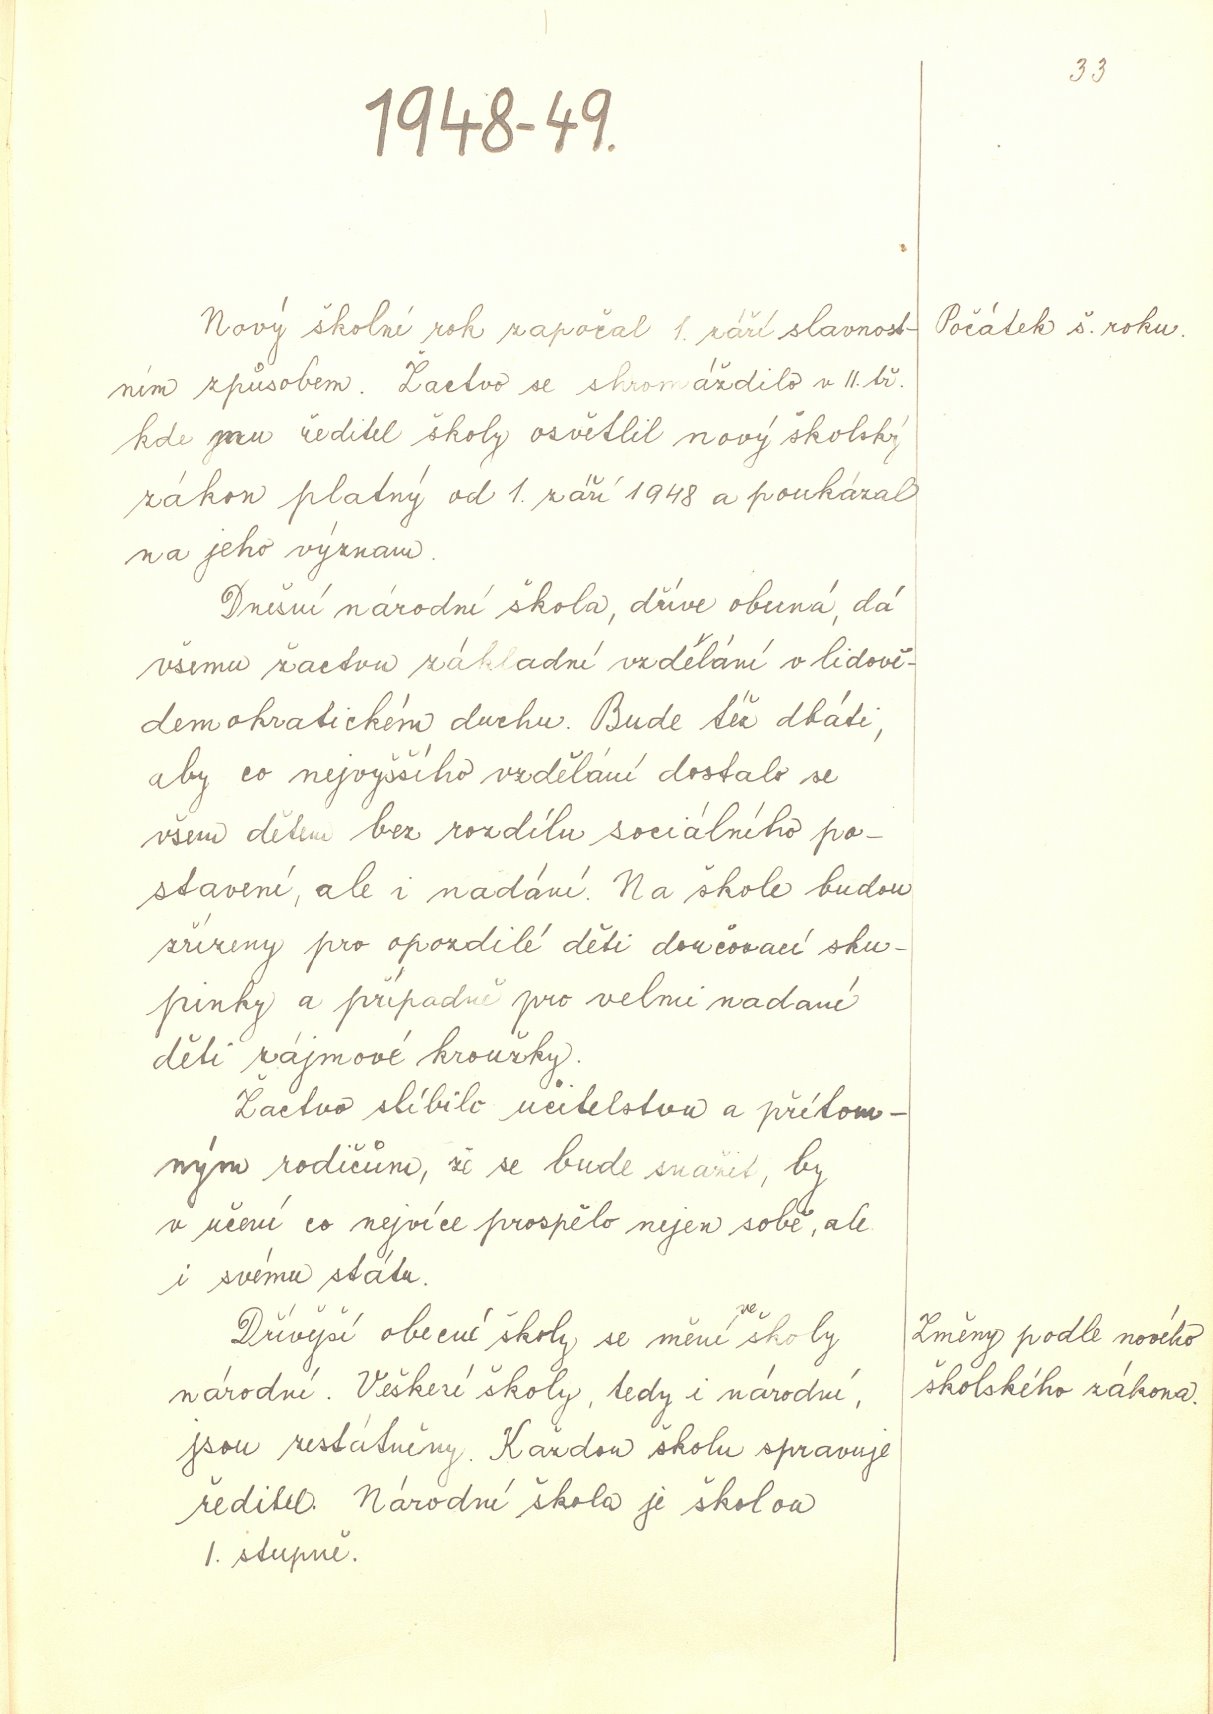 33
1948-49.
Nový školní rok započal 1. září slavnost-
ním způsobem. Žactvo se shromáždilo v II. tř.
kde mu ředitel školy osvětlil nový školský
zákon platný od 1. září 1948 a poukázal
na jeho význam.
Dnešní národní škola, dříve obecná, dá
všemu žactvu základní vzdělání v lidově-
demokratickém duchu. Bude též dbáti,
aby co nejvyššího vzdělání dostalo se
všem dětem bez rozdílu sociálního po-
stavení, ale i nadání. Na škole budou
zřízeny pro opozdilé děti doučovací sku-
pinky a případně pro velmi nadané
děti zájmové kroužky.
Žactvo slíbilo učitelstvu a přítom-
ným rodičům, že se bude snažit, by
v učení co nejvíce prospělo nejen sobě, ale
i svému státu.
Dřívější obecné školy se mění ve školy
národní. Veškeré školy, tedy i národní,
jsou zestátněny. Každou školu spravuje
ředitel. Národní škola je školou
1. stupně.
Počátek š. roku.
Změny podle nového
školského zákona.